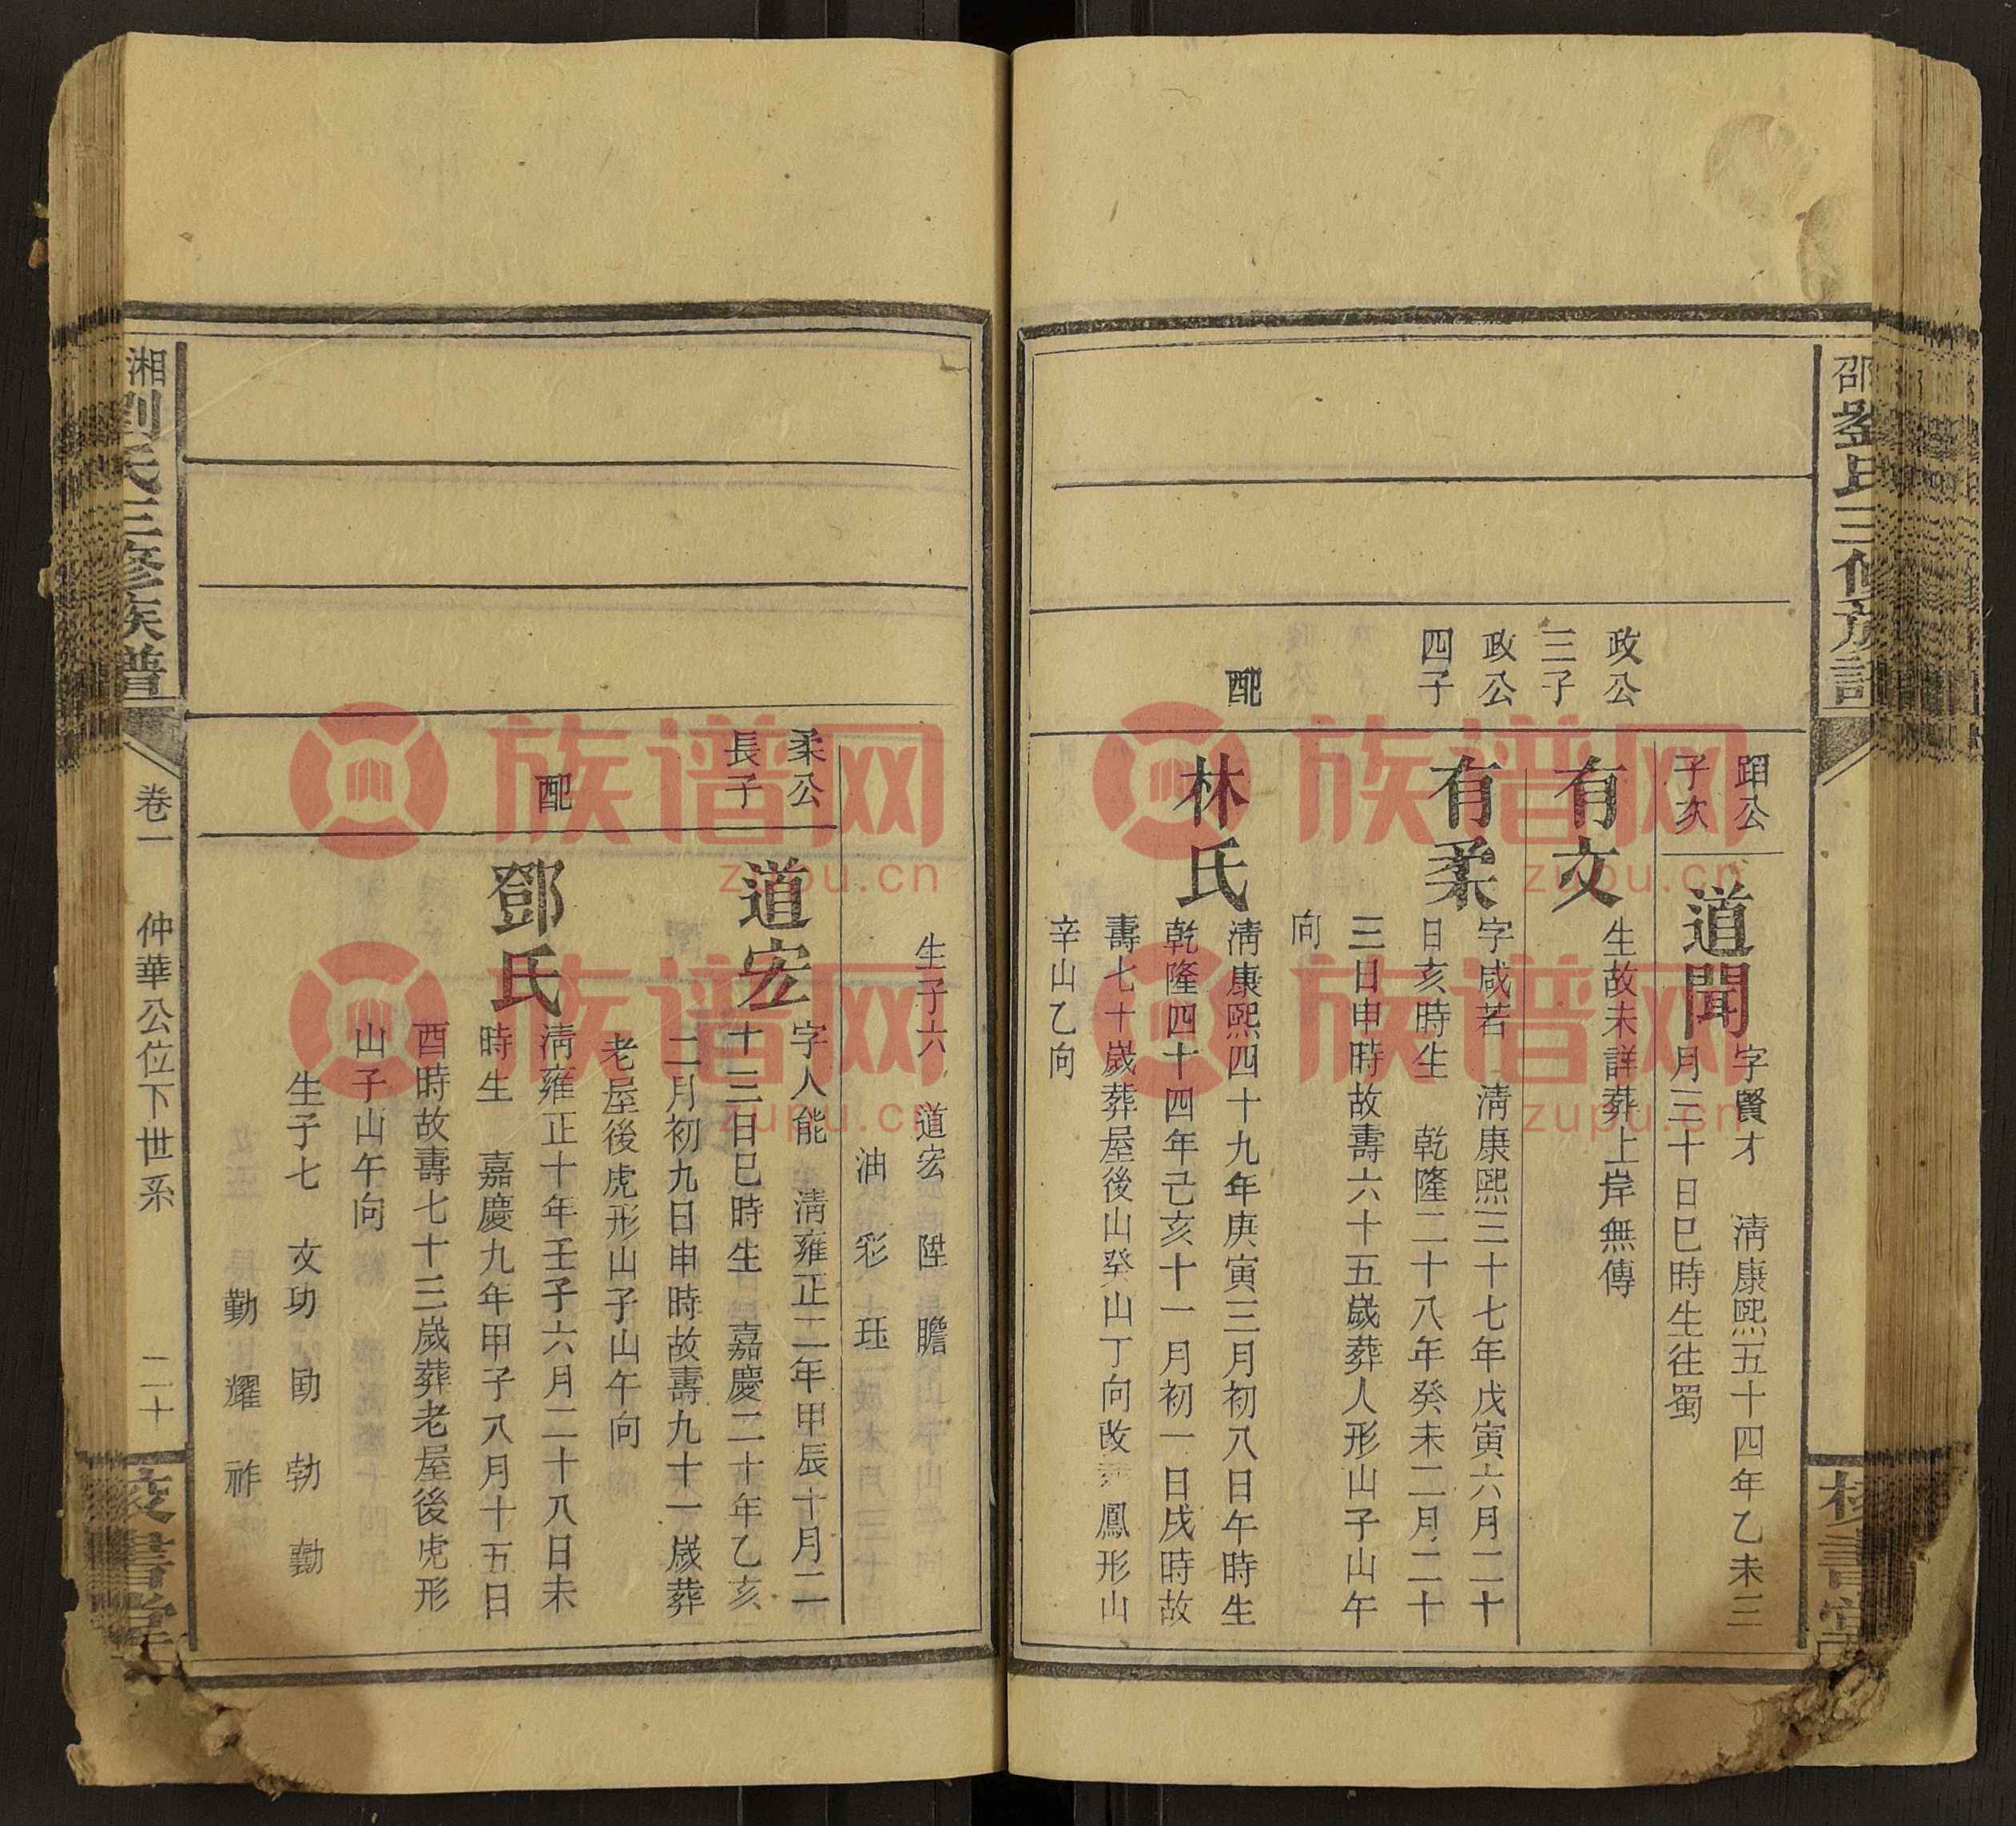 政公
三子
政公
四子
配
公
子次
道聞
字賢才　淸康熙五十四年乙未三
月三十日巳時生往蜀
有文
生故未詳葬上岸無傳
有柔
字咸若　淸康熙三十七年戊寅六月二十
日亥時生　乾隆二十八年癸未二月二十
三日申時故壽六十五歲葬人形山子山午
向
林氏
淸康熙四十九年庚寅三月初八日午時生
乾隆四十四年己亥十一月初一日戌時故
壽七十歲葬屋後山癸山丁向改葬鳳形山
辛山乙向
生子六　道宏　陞　瞻
油　彩　珏
柔公
長子
道宏
字人能　淸雍正二年甲辰十月二
十三日巳時生　嘉慶二十年乙亥
二月初九日申時故壽九十一歲葬
老屋後虎形山子山午向
配
鄧氏
淸雍正十年壬子六月二十八日未
時生　嘉慶九年甲子八月十五日
酉時故壽七十三歲葬老屋後虎形
山子山午向
生子七　文功　勛　勃　勷
勤　耀　祚
湘
劉氏三修族譜
卷一　仲華公位下世系　二十
校書堂
邵
族谱网
zupu.cn
族谱网
zupu.cn
族谱网
zupu.cn
族谱网
zupu.cn